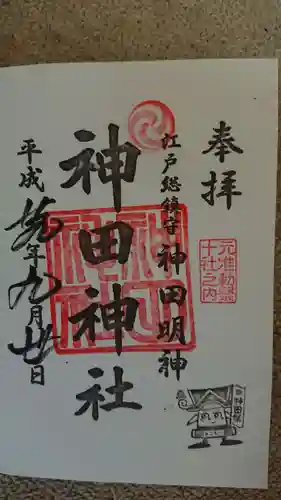 奉拝
元准勅祭
十社之内
江戸総鎮守 神田明神
神田神社
平成 年九月廿日